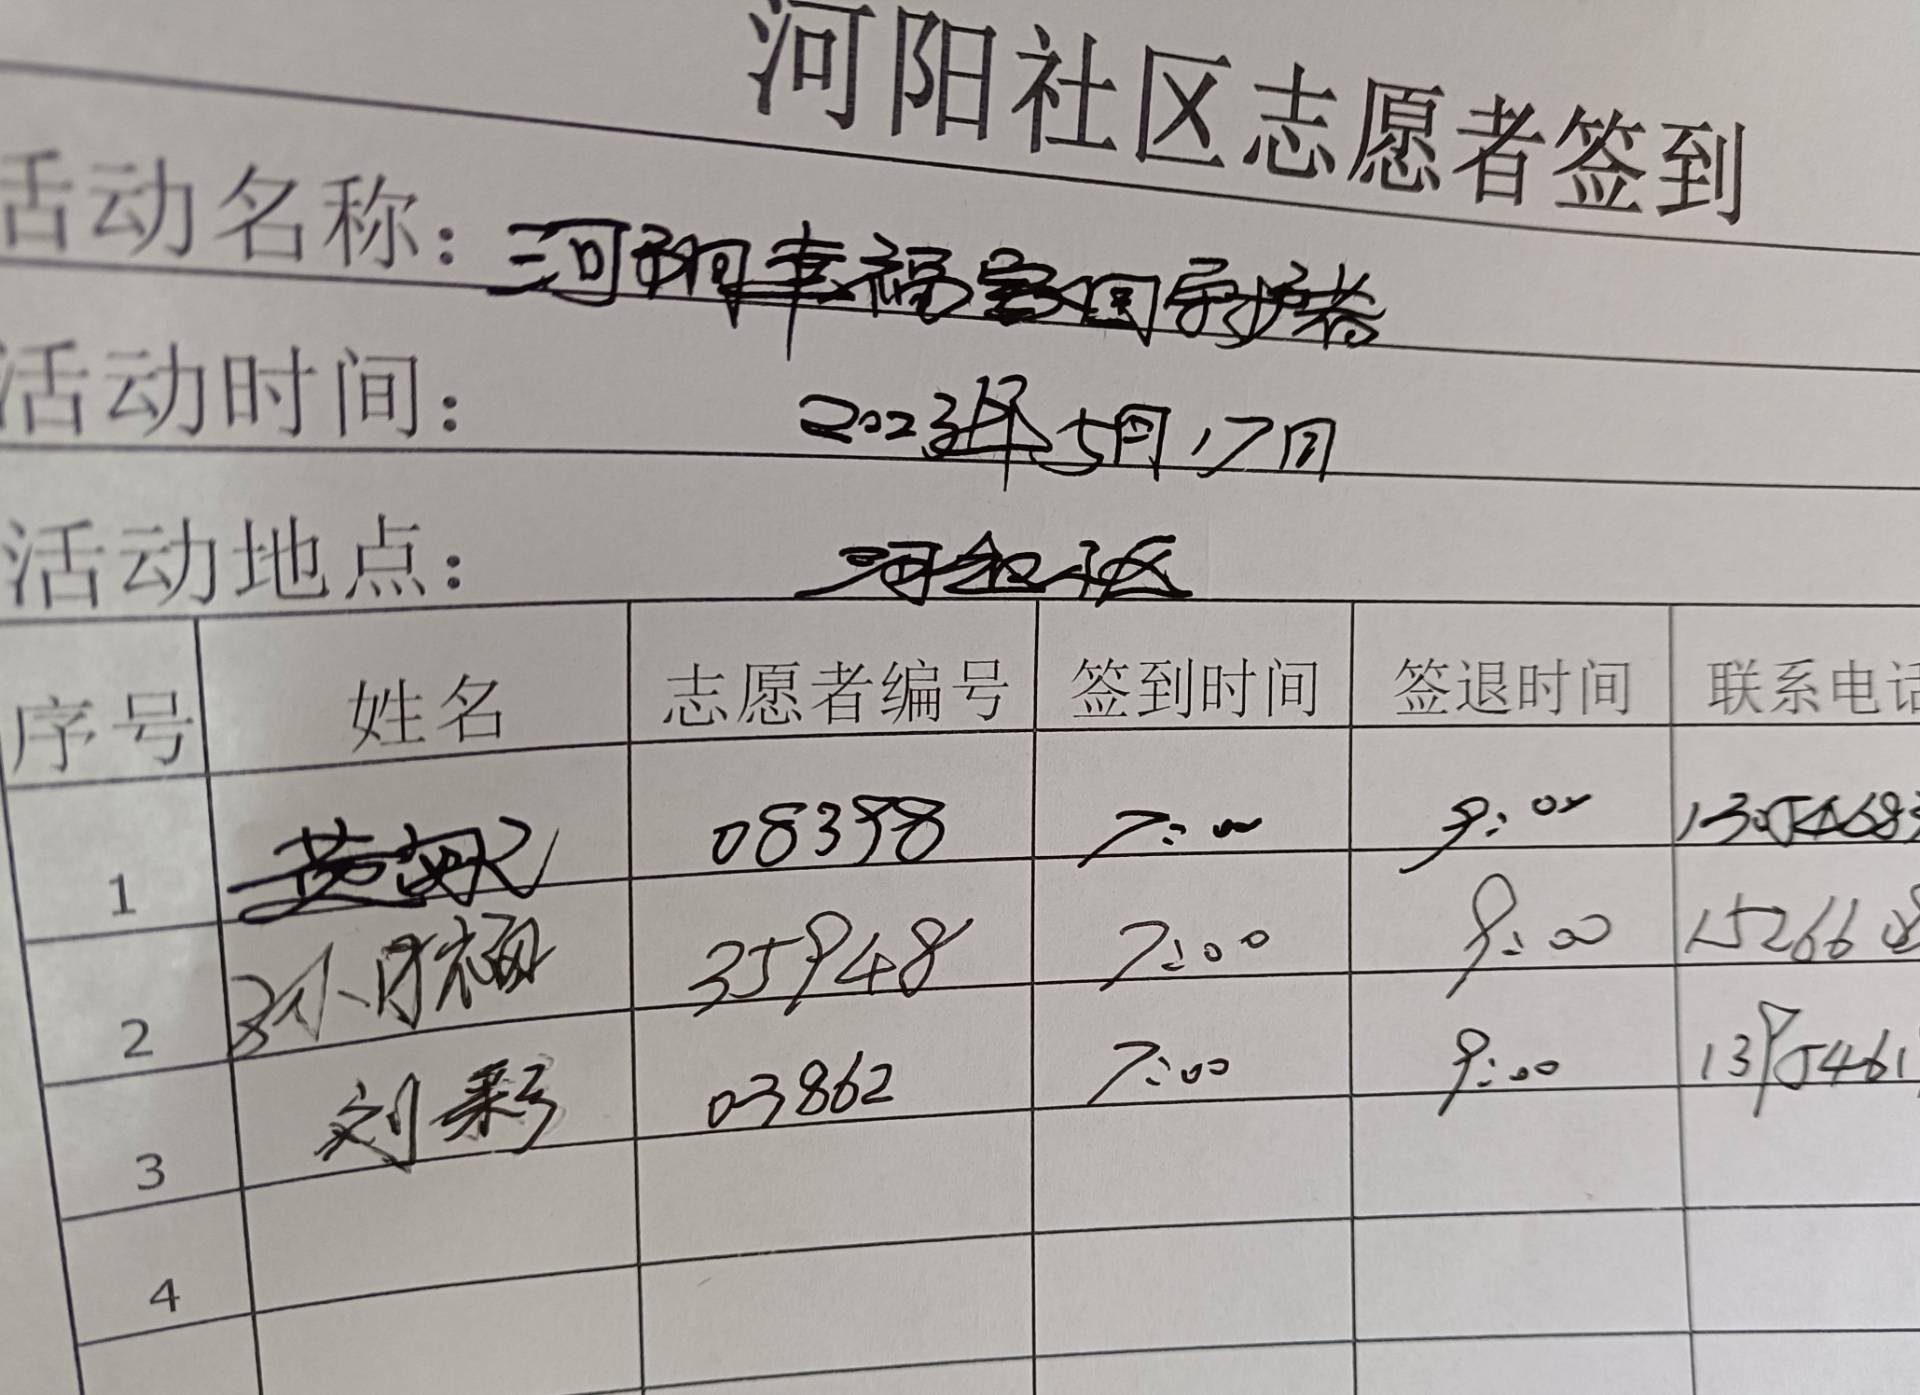 河阳社区志愿者签到
活动名称：河阳幸福家园守护者
活动时间：2023年5月17日
活动地点：河阳社区
序号 姓名 志愿者编号 签到时间 签退时间 联系电话
1 08398 7:00 9:00 1305468
2 35948 7:00 9:00 15266
3 刘彩 03862 7:00 9:00 1395461
4